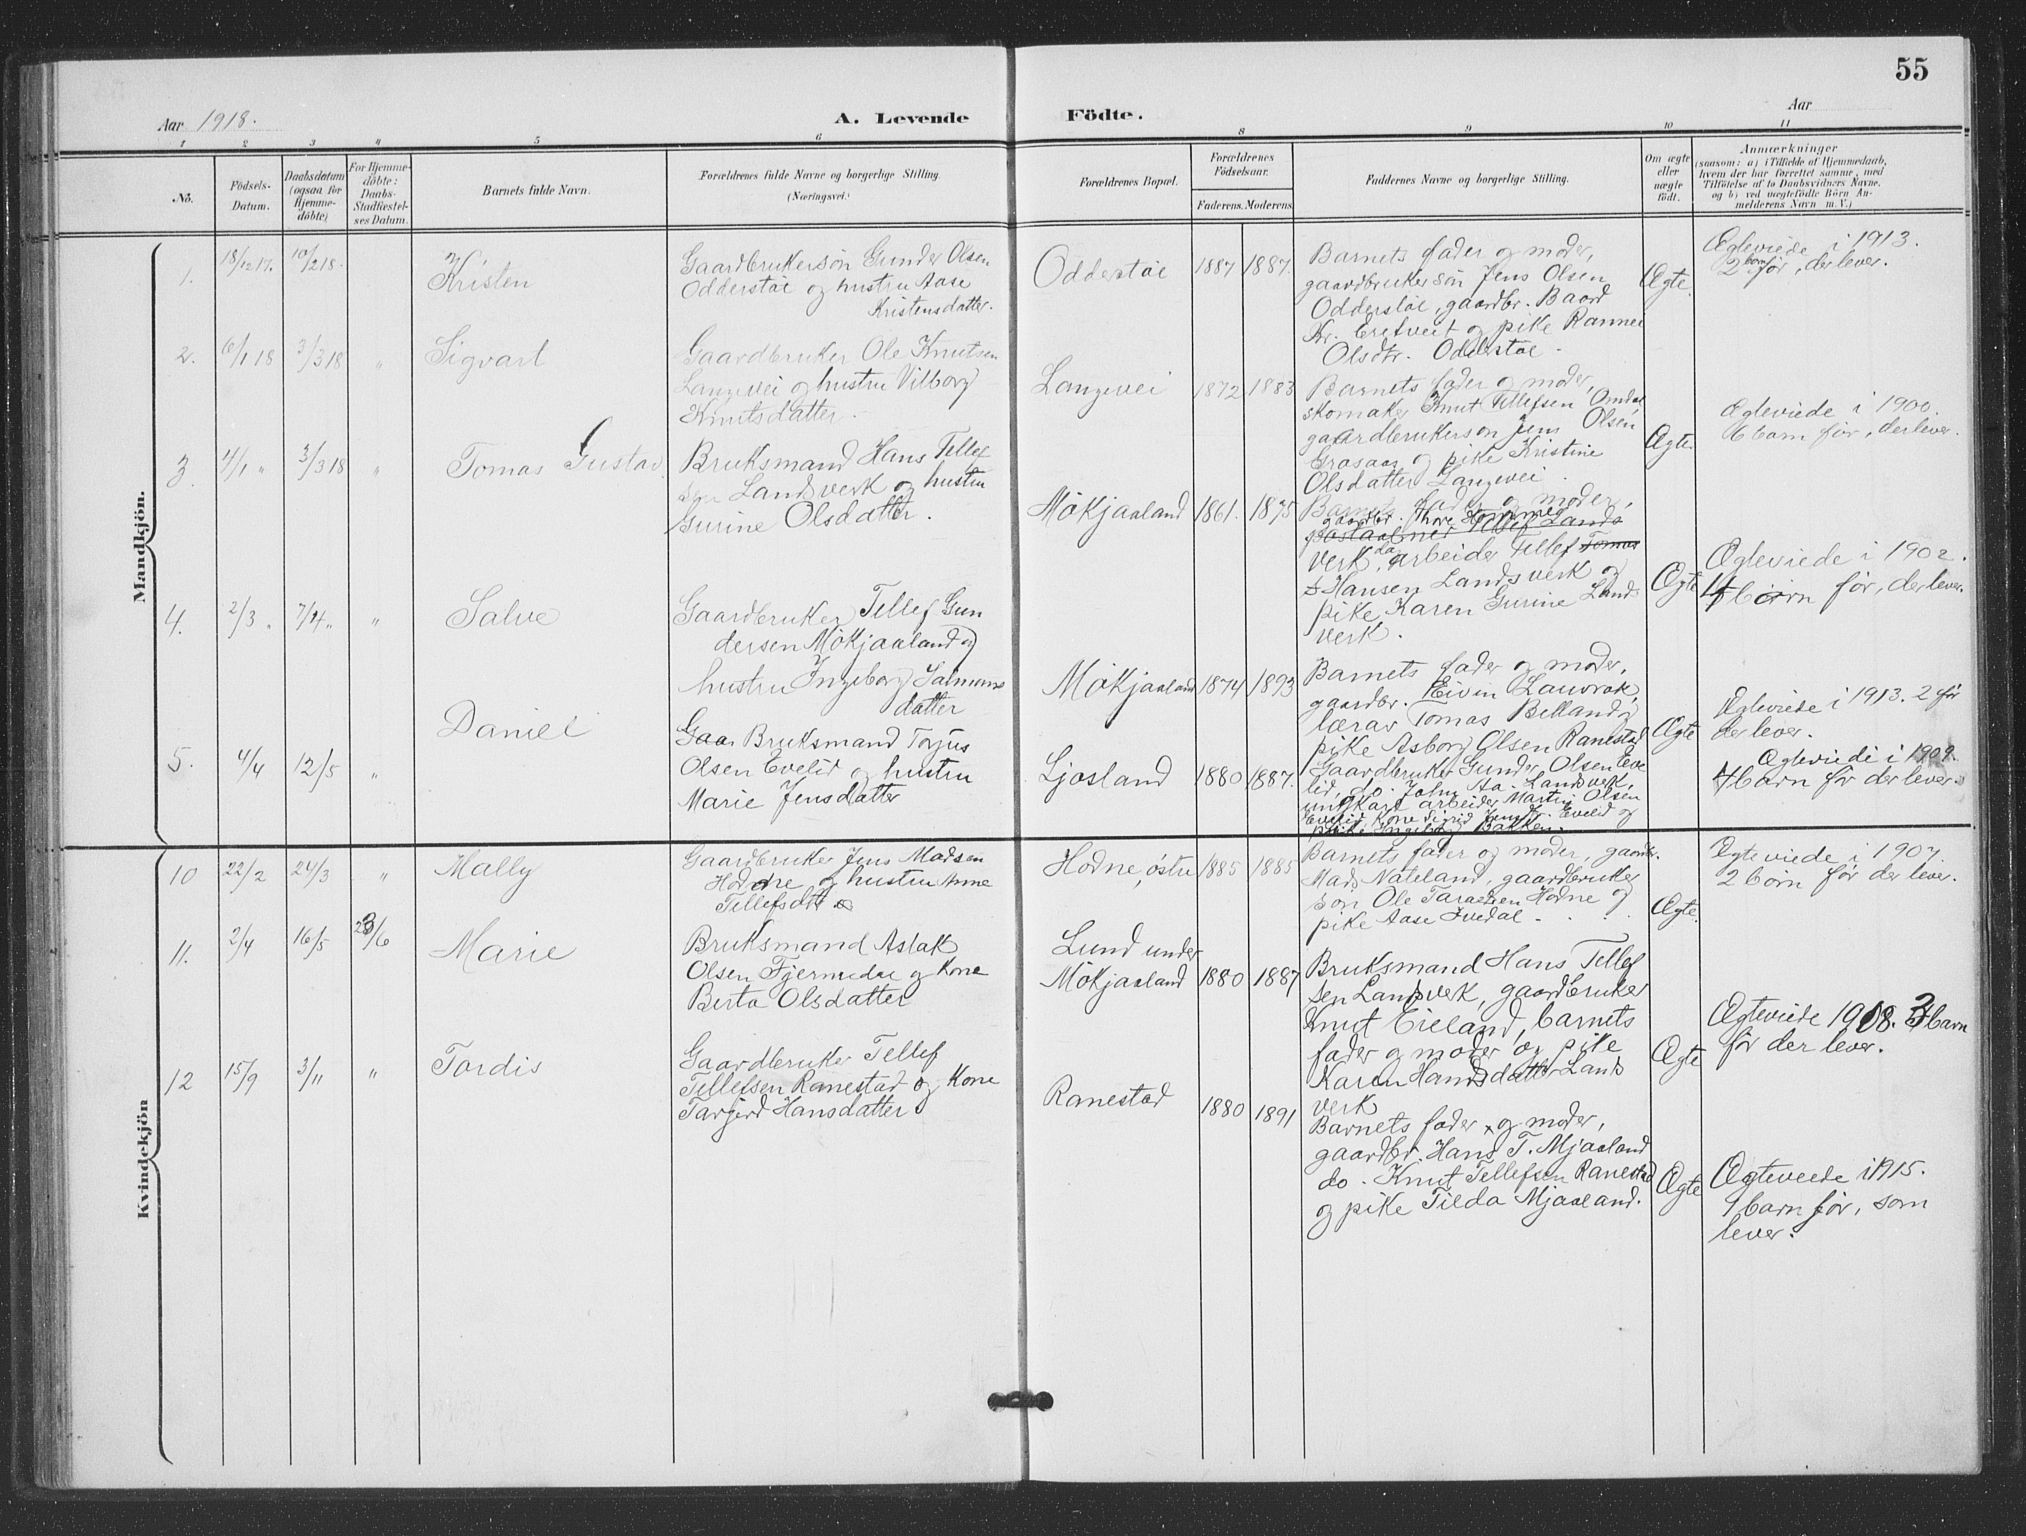 55
Aar 1918.
A. Levende
Födte.
Aar
1 2 3 4 5 6 8 9 10 11
No.
Födsels-
Datum.
Daabsdatum
(ogsaa for
Hjemme-
döbte)
For Hjemme-
döbte:
Daabs-
Stadfæstel-
ses Datum.
Barnets fulde Navn.
Forældrenes fulde Navne og borgerlige Stilling.
(Næringsvei.)
Forældrenes Bopæl.
Forældrenes
Födselsaar.
Faderens. Moderens.
Faddernes Navne og borgerlige Stilling.
Om ægte
eller
uægte
födt.
Anmærkninger
(saasom: a) i Tilfælde af Hjemmedaab,
hvem der har forrettet samme, med
Tilföielse af to Daabsvidners Navne.
og b) ved uægtefödte Börn An-
melderens Navn m. V.)
Mandkjön.
1. 18/12 17. 10/2 18.
Kristen
Gaardbrukersön Gunder Olsen
Odderstöl og hustru Aase
Kristensdatter.
Odderstöl
1887 1887.
Barnets fader og moder,
gaardbrukersön Jens Olsen
Odderstöl, gaardbr. Baard
Kr. Eretveit og pike Rannei
Olsdtr. Odderstöl.
Ægte.
Ægteviede i 1913.
2 barn för, der lever.
2. 6/1 18 3/3 18 "
Sigvart
Gaardbruker Ole Knutsen
Langevei og hustru Vilborg
Knutsdatter.
Langevei
1872 1883
Barnets fader og moder,
skomaker Knut Tellefsen Omdal
gaardbrukersön Jens Olsen
Grosaas og pike Kristine
Olsdatter Langevei.
Ægte.
Ægteviede i 1900.
6 barn för, der lever.
3. 4/1 " 3/3 18 "
Tomas Gustav
Bruksmand Hans Tellef
sen Landsverk og hustru
Gurine Olsdatter.
Mökjaaland
1861. 1875
Barnets fader og moder,
gaardbr. Thore
Tellef Lands
verk, do. arbeider Tellef Tomas
Hansen Landsverk og
pike Karen Gurine Lands
verk.
Ægte
Ægteviede i 1902.
4 börn för, der lever.
4. 2/3 " 7/4 " "
Salve
Gaardbruker Tellef Gun
dersen Mökjaaland og
hustru Ingeborg Salmons
datter
Mökjaaland
1874 1893
Barnets fader og moder,
gaardbr. Eivin Lauvrak,
lærar Tomas Belland og
pike Asborg Olsen Ranestad
Ægte
Ægteviede i 1913. 2 för
der lever.
5. 4/4 12/5 "
Daniel
Gaar Bruksmand Torjus
Olsen Evelid og hustru
Marie Jensdatter
Ljosland
1880 1887.
Gaardbruker Gunder Olsen Eve
lid, do. John Aa. Landsverk,
ungkarl arbeider Martin Olsen
Evelid, Kone Sigrid Evelid og
pike Ingeborg Bakken.
Ægteviede i 1909.
4 barn för der lever.
Kvindekjön
10 22/2 24/3 "
Mally
Gaardbruker Jens Madsen
Hodne og hustru Anne
Tellefsdtr
Hodne, östre
1885 1885
Barnets fader og moder, gaardbr.
Mads Nateland, gaardbruker
sön Ole Taraldsen Hodne og
pike Aase Ivedal.
Ægte.
Ægteviede i 1907.
2 börn för der lever.
11. 2/4 16/5 23/6
Marie
Bruksmand Aslak
Olsen Fjermedal og Kone
Berta Olsdatter
Lund under
Mökjaaland
1880 1887
Bruksmand Hans Tellef
sen Landsverk, gaardbruker
Knut Eieland, barnets
fader og moder og pike
Karen Hansdatter Lands
verk
Ægte
Ægteviede 1908. 3 barn
för der lever.
12 15/9 3/11 "
Tordis
Gaardbruker Tellef
Tellefsen Ranestad og Kone
Targjerd Hansdatter
Ranestad
1880 1891
Barnets fader og moder,
gaardbr. Hans T. Mjaaland
do. Knut Tellefsen Ranestad
og pike Tilda Mjaaland.
Ægte
Ægteviede i 1915.
1 barn för, som
lever.